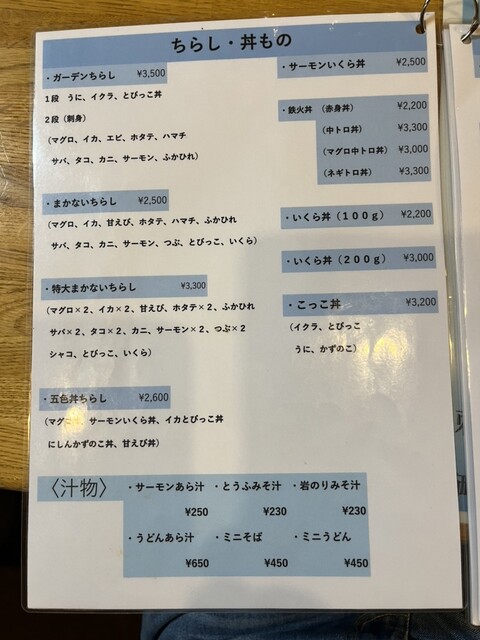 ちらし・丼もの
・ガーデンちらし ¥3,500
1段 うに、イクラ、とびっこ丼
2段(刺身)
(マグロ、イカ、エビ、ホタテ、ハマチ
サバ、タコ、カニ、サーモン、ふかひれ)
・まかないちらし ¥2,500
(マグロ、イカ、甘えび、ホタテ、ハマチ、ふかひれ
サバ、タコ、カニ、サーモン、つぶ、とびっこ、いくら)
・特大まかないちらし ¥3,300
(マグロ×2、イカ×2、甘えび、ホタテ×2、ふかひれ
サバ×2、タコ×2、カニ、サーモン×2、つぶ×2
シャコ、とびっこ、いくら)
・五色丼ちらし ¥2,600
(マグロ、サーモンいくら丼、イカとびっこ丼
にしんかずのこ丼、甘えび丼)
・サーモンいくら丼 ¥2,500
・鉄火丼 (赤身丼) ¥2,200
(中トロ丼) ¥3,300
(マグロ中トロ丼) ¥3,000
(ネギトロ丼) ¥3,300
・いくら丼(100g) ¥2,200
・いくら丼(200g) ¥3,000
・こっこ丼 ¥3,200
(イクラ、とびっこ
うに、かずのこ)
〈汁物〉
・サーモンあら汁 ・とうふみそ汁 ・岩のりみそ汁
¥250 ¥230 ¥230
・うどんあら汁 ・ミニそば ・ミニうどん
¥650 ¥450 ¥450